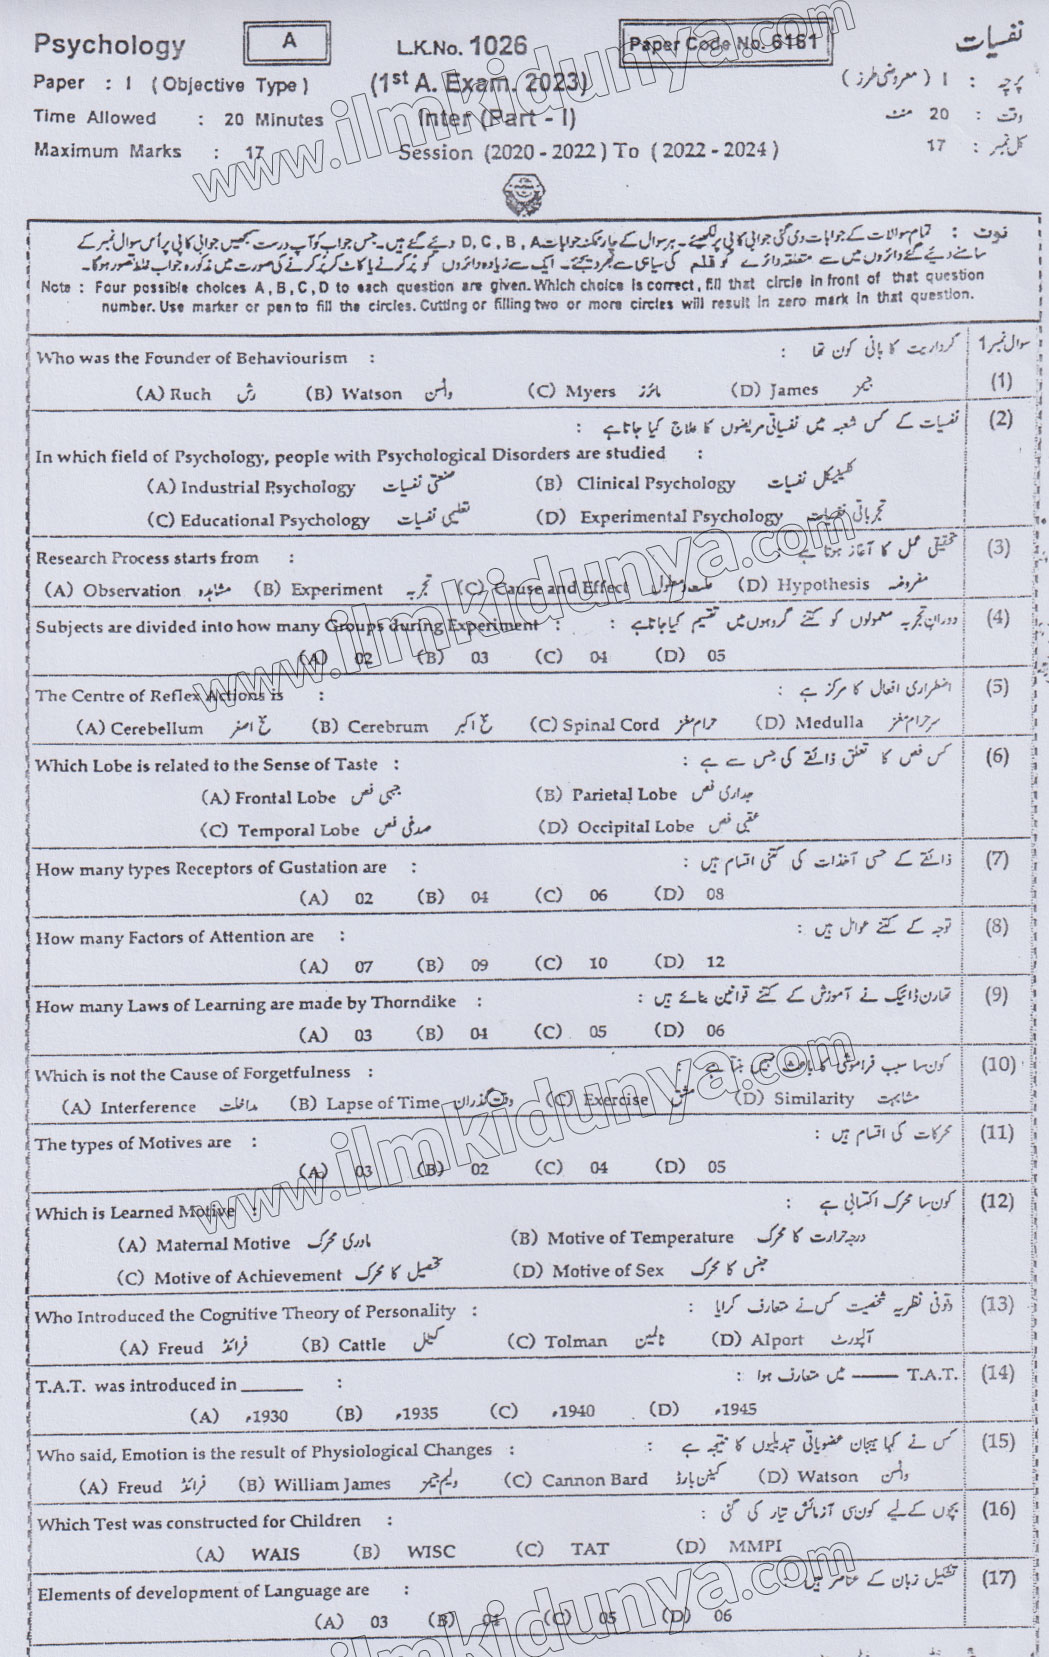 Psychology A L.K.No. 1026 Paper Code No. 6161 نفسیات
Paper : I ( Objective Type ) (1st A. Exam. 2023) پرچہ : I ( معروضی طرز )
Time Allowed : 20 Minutes Inter (Part - I) وقت : 20 منٹ
Maximum Marks : 17 Session (2020 - 2022) To (2022 - 2024) کل نمبر : 17
نوٹ : تمام سوالات کے جوابات دی گئی جوابی کاپی پر لکھیئے۔ ہر سوال کے چار ممکنہ جوابات D , C , B , A دیئے گئے ہیں۔ جس جواب کو آپ درست سمجھیں جوابی کاپی پر اُس سوال نمبر کے
سامنے دیئے گئے دائروں میں سے متعلقہ دائرے کو قلم کی سیاہی سے بھر دیجئے۔ ایک سے زیادہ دائروں کو پُر کرنے یا کاٹ کر پُر کرنے کی صورت میں مذکورہ جواب غلط تصور ہوگا۔
Note : Four possible choices A , B , C , D to each question are given. Which choice is correct , fill that circle in front of that question
number. Use marker or pen to fill the circles. Cutting or filling two or more circles will result in zero mark in that question.
سوال نمبر 1
Who was the Founder of Behaviourism : کرداریت کا بانی کون تھا : (1)
(A) Ruch رش (B) Watson واٹسن (C) Myers مائرز (D) James جیمز
نفسیات کے کس شعبہ میں نفسیاتی مریضوں کا علاج کیا جاتا ہے : (2)
In which field of Psychology, people with Psychological Disorders are studied :
(A) Industrial Psychology صنعتی نفسیات (B) Clinical Psychology کلینیکل نفسیات
(C) Educational Psychology تعلیمی نفسیات (D) Experimental Psychology تجرباتی نفسیات
Research Process starts from : تحقیقی عمل کا آغاز ہوتا ہے : (3)
(A) Observation مشاہدہ (B) Experiment تجربہ (C) Cause and Effect علت و معلول (D) Hypothesis مفروضہ
Subjects are divided into how many Groups during Experiment : دوران تجربہ معمولوں کو کتنے گروہوں میں تقسیم کیا جاتا ہے : (4)
(A) 02 (B) 03 (C) 04 (D) 05
The Centre of Reflex Actions is : اضطراری افعال کا مرکز ہے : (5)
(A) Cerebellum مخ اصغر (B) Cerebrum مخ اکبر (C) Spinal Cord حرام مغز (D) Medulla سر حرام مغز
Which Lobe is related to the Sense of Taste : کس فص کا تعلق ذائقے کی حس سے ہے : (6)
(A) Frontal Lobe جبہی فص (B) Parietal Lobe جداری فص
(C) Temporal Lobe صدغی فص (D) Occipital Lobe عقبی فص
How many types Receptors of Gustation are : ذائقے کے حسی آخذات کی کتنی اقسام ہیں : (7)
(A) 02 (B) 04 (C) 06 (D) 08
How many Factors of Attention are : توجہ کے کتنے عوامل ہیں : (8)
(A) 07 (B) 09 (C) 10 (D) 12
How many Laws of Learning are made by Thorndike : تھارن ڈائیک نے آموزش کے کتنے قوانین بنائے ہیں : (9)
(A) 03 (B) 04 (C) 05 (D) 06
Which is not the Cause of Forgetfulness : کون سا سبب فراموشی کا باعث نہیں بنتا ہے : (10)
(A) Interference مداخلت (B) Lapse of Time وقت گذران (C) Exercise مشق (D) Similarity مشابہت
The types of Motives are : محرکات کی اقسام ہیں : (11)
(A) 03 (B) 02 (C) 04 (D) 05
Which is Learned Motive : کون سا محرک اکتسابی ہے : (12)
(A) Maternal Motive مادری محرک (B) Motive of Temperature درجہ حرارت کا محرک
(C) Motive of Achievement تحصیل کا محرک (D) Motive of Sex جنس کا محرک
Who Introduced the Cognitive Theory of Personality : وقوفی نظریہ شخصیت کس نے متعارف کرایا : (13)
(A) Freud فرائڈ (B) Cattle کیٹل (C) Tolman ٹالمین (D) Alport آلپورٹ
T.A.T. was introduced in ______ : T.A.T. ______ میں متعارف ہوا : (14)
(A) 1930ء (B) 1935ء (C) 1940ء (D) 1945ء
Who said, Emotion is the result of Physiological Changes : کس نے کہا ہیجان عضویاتی تبدیلیوں کا نتیجہ ہے : (15)
(A) Freud فرائڈ (B) William James ولیم جیمز (C) Cannon Bard کینن بارڈ (D) Watson واٹسن
Which Test was constructed for Children : بچوں کے لیے کون سی آزمائش تیار کی گئی : (16)
(A) WAIS (B) WISC (C) TAT (D) MMPI
Elements of development of Language are : تشکیل زبان کے عناصر ہیں : (17)
(A) 03 (B) 04 (C) 05 (D) 06
www.ilmkidunya.com
www.ilmkidunya.com
www.ilmkidunya.com
ilmkidunya.com